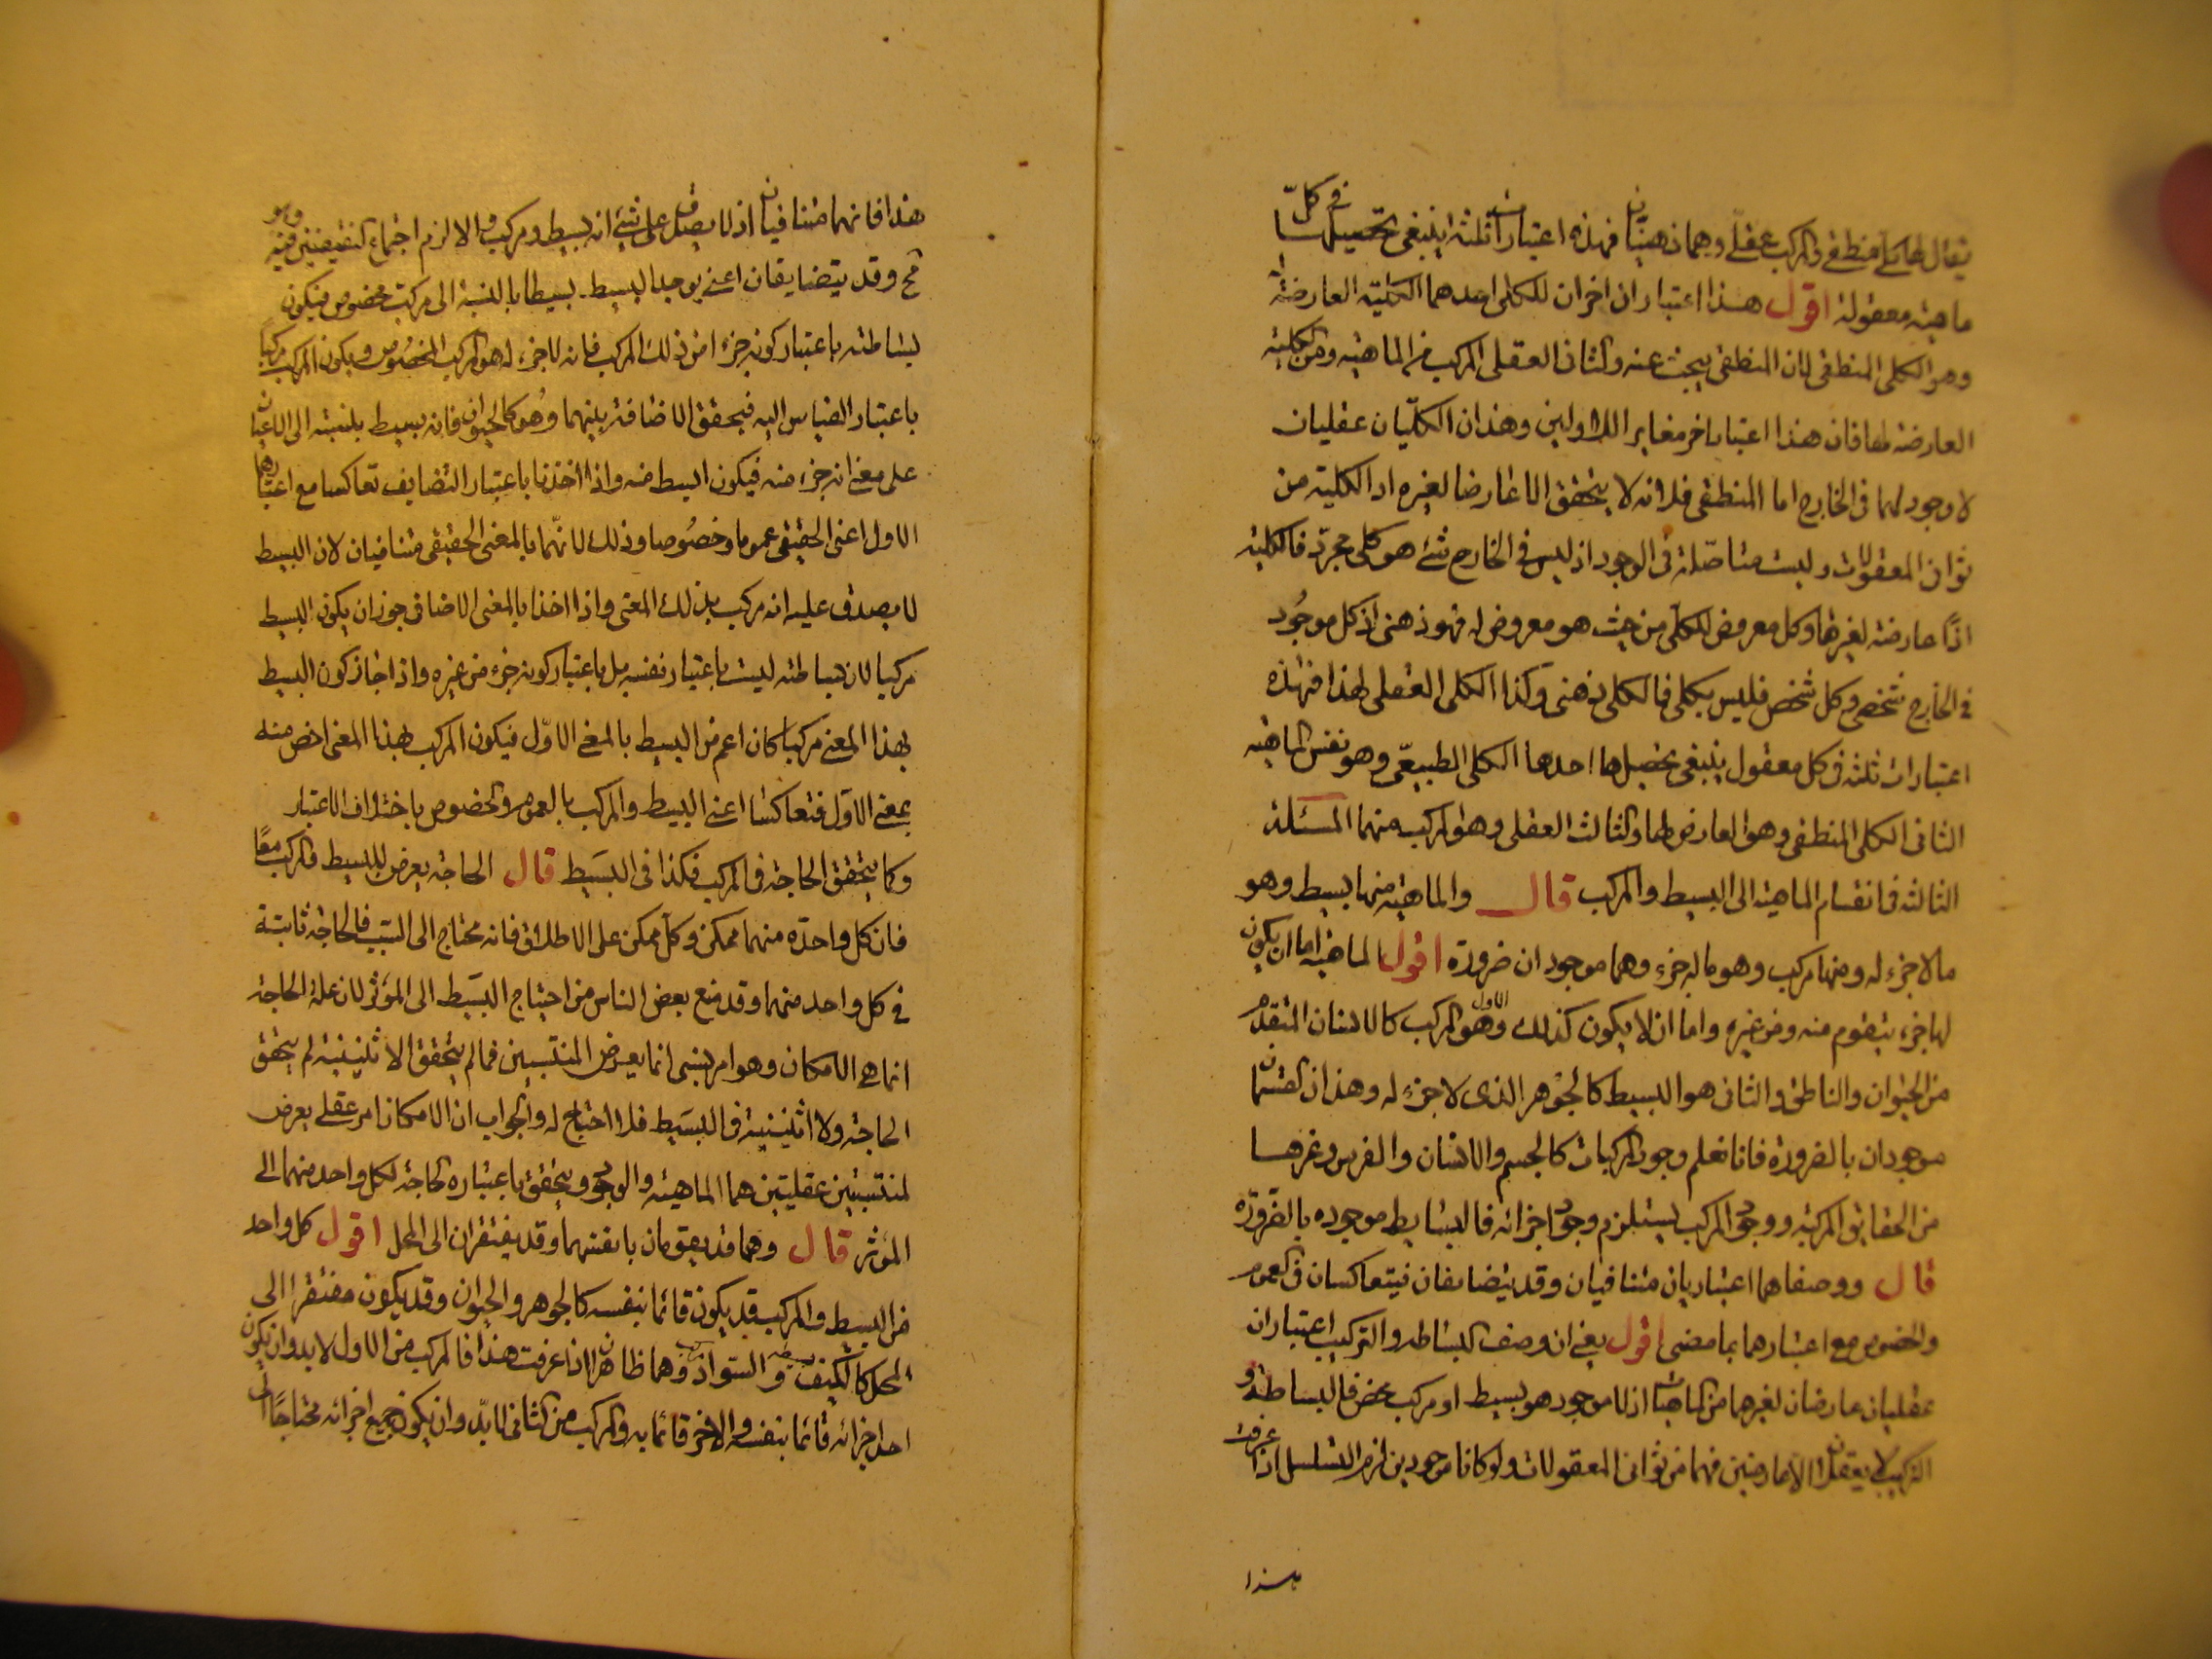 يقال لها كلي منطقي والمركب عقلي وهما ذهنيان فهذه اعتبارات ثلثة ينبغي تحصيلها في كل
ماهية معقولة اقول هذا اعتباران اخران للكلي احدهما الكلية العارضة لها
وهو الكلي المنطقي لان المنطقي يبحث عنه والثاني العقلي المركب من الماهية ومن الكلية
العارضة لها فان هذا اعتبار اخر مغاير للاولين وهذان الكليان عقليان
لا وجود لهما في الخارج اما المنطقي فلانه لا يتحقق الا عارضا لغيره اذ الكلية من
ثواني المعقولات وليست متاصلة في الوجود اذ ليس في الخارج شئ هو كلي مجرد فالكلية
اذًا عارضة لغيرها وكل معروض للكلي من حيث هو معروض له فهو ذهني اذ كل موجُود
في الخارج شخصي وكل شخص فليس بكلي فالكلي ذهني وكذا الكلي العقلي لهذا فهذه
اعتبارات ثلثة في كل معقول ينبغي تحصيلها احدها الكلي الطبيعّي وهو نفس الماهية
الثاني الكلي المنطقي وهو العارض لها والثالث العقلي وهو المركب منهما المسئلة
الثالثه في انقسام الماهية الى البسيط والمركب قال والماهية منها بسيط وهو
ما لا جزء له ومنها مركب وهو ما له جزء وهما موجودان ضرورة اقول الماهية اما ان يكون
لها جزء يتقوم منه ومن غيره واما ان لا يكون كذلك والاول هو المركب كالانسان المتقدم
من الحيوان والناطق والثاني هو البسيط كالجوهر الذى لا جزء له وهذان القسمان
موجودان بالضرورة فانا نعلم وجود المركبات كالجسم والانسان والفرس وغيرها
من الحقايق المركبة ووجود المركب يستلزم وجود اجزائه فالبسايط موجوده بالضروره
قال ووصفاهما اعتباريان متنافيان وقد يتضايفان فيتعاكسان في العموم
والخصوص مع اعتبارهما بما مضى اقول يعني ان وصف البساطه والتركيب اعتباران
عقليان عارضان لغيرهما من الماهيات اذ لا موجود هو بسيط او مركب محض فالبساطة و
التركيب لا يعقلان الا عارضين فهما من ثواني المعقولات ولو كانا موجودين لزم التسلسل اذا عرفت
هذا
هذا فانهما متنافيان اذ لا يصدق على شئ انه بسيط ومركب والا لزم اجتماع النقيضين فيه وهو
مح وقد يتضايفان اعني يوجد البسيط بسيطا بالنسبة الى مركب مخصوص فيكون
بساطته باعتبار كونه جزءا من ذلك المركب فانه لا جزء له هو المركب المخصُوص ويكون المركب مركبًا
باعتبار القياس اليه فيحقق الاضافة بينهما وهُو كالحيوان فانه بسيط بالنسبه الى الانسان
على معنى انه جزء منه فيكون ابسط منه واذا اخذنا باعتبار التضايف تعاكسا مع اعتبارهما
الاول اعني الحقيقي عموما وخصُوصا وذلك لانّهما بالمعنى الحقيقي متنافيان لان البسيط
لا يصدق عليه انه مركب بذلك المعنى واذا اخذا بالمعنى الاضافي جوز ان يكون البسيط
مركبا لان بساطته ليست باعتبار نفسه بل باعتبار كونه جزء من غيره واذا جاز كون البسيط
بهذا المعنى مركبا كان اعم من البسيط بالمعنى الاوّل فيكون المركب بهذا المعنى اخص منه
بمعنى الاول فتعاكسا اعني البسيط والمركب بالعموم والخصوص باختلاف الاعتبار
وكما يتحقق الحاجة في المركب فكذا في البسَيط قال الحاجة يعرض للبسيط والمركب معًا
فان كل واحده منهما ممكن وكل ممكن على الاطلاق فانه محتاج الى السبب فالحاجة ثابتة
في كل واحد منهما وقد منع بعض الناس من احتياج البسَيط الى المؤثر لان علة الحاجة
انما هي الامكان وهو امر نسبى انما يعرض المنتسبين فما لم يتحقق الاثنينية لم يتحقق
الحاجة ولا اثنينية في البسَيط فلا احتياج له والجواب ان الامكان امر عقلي يعرض
لمنتسبتين عقليتين هما الماهية والوجود ويتحقق باعتباره الحاجة لكل واحد منهما الى
المؤثر قال وهما قد يقومان بانفسهما وقد يفتقران الى المحل اقول كل واحد
من البسيط والمركب قد يكون قائما بنفسه كالجوهر والحيوان وقد يكون مفتقرا الى
المحل كالكيف والسواد وهما ظاهران اذا عرفت هذا فالمركب من الاول لا بد وان يكون
احد اجزائه قائما بنفسه والاخر قائما به والمركب من الثاني لا بدّ وان يكون جميع اجزائه محتاجًا الى